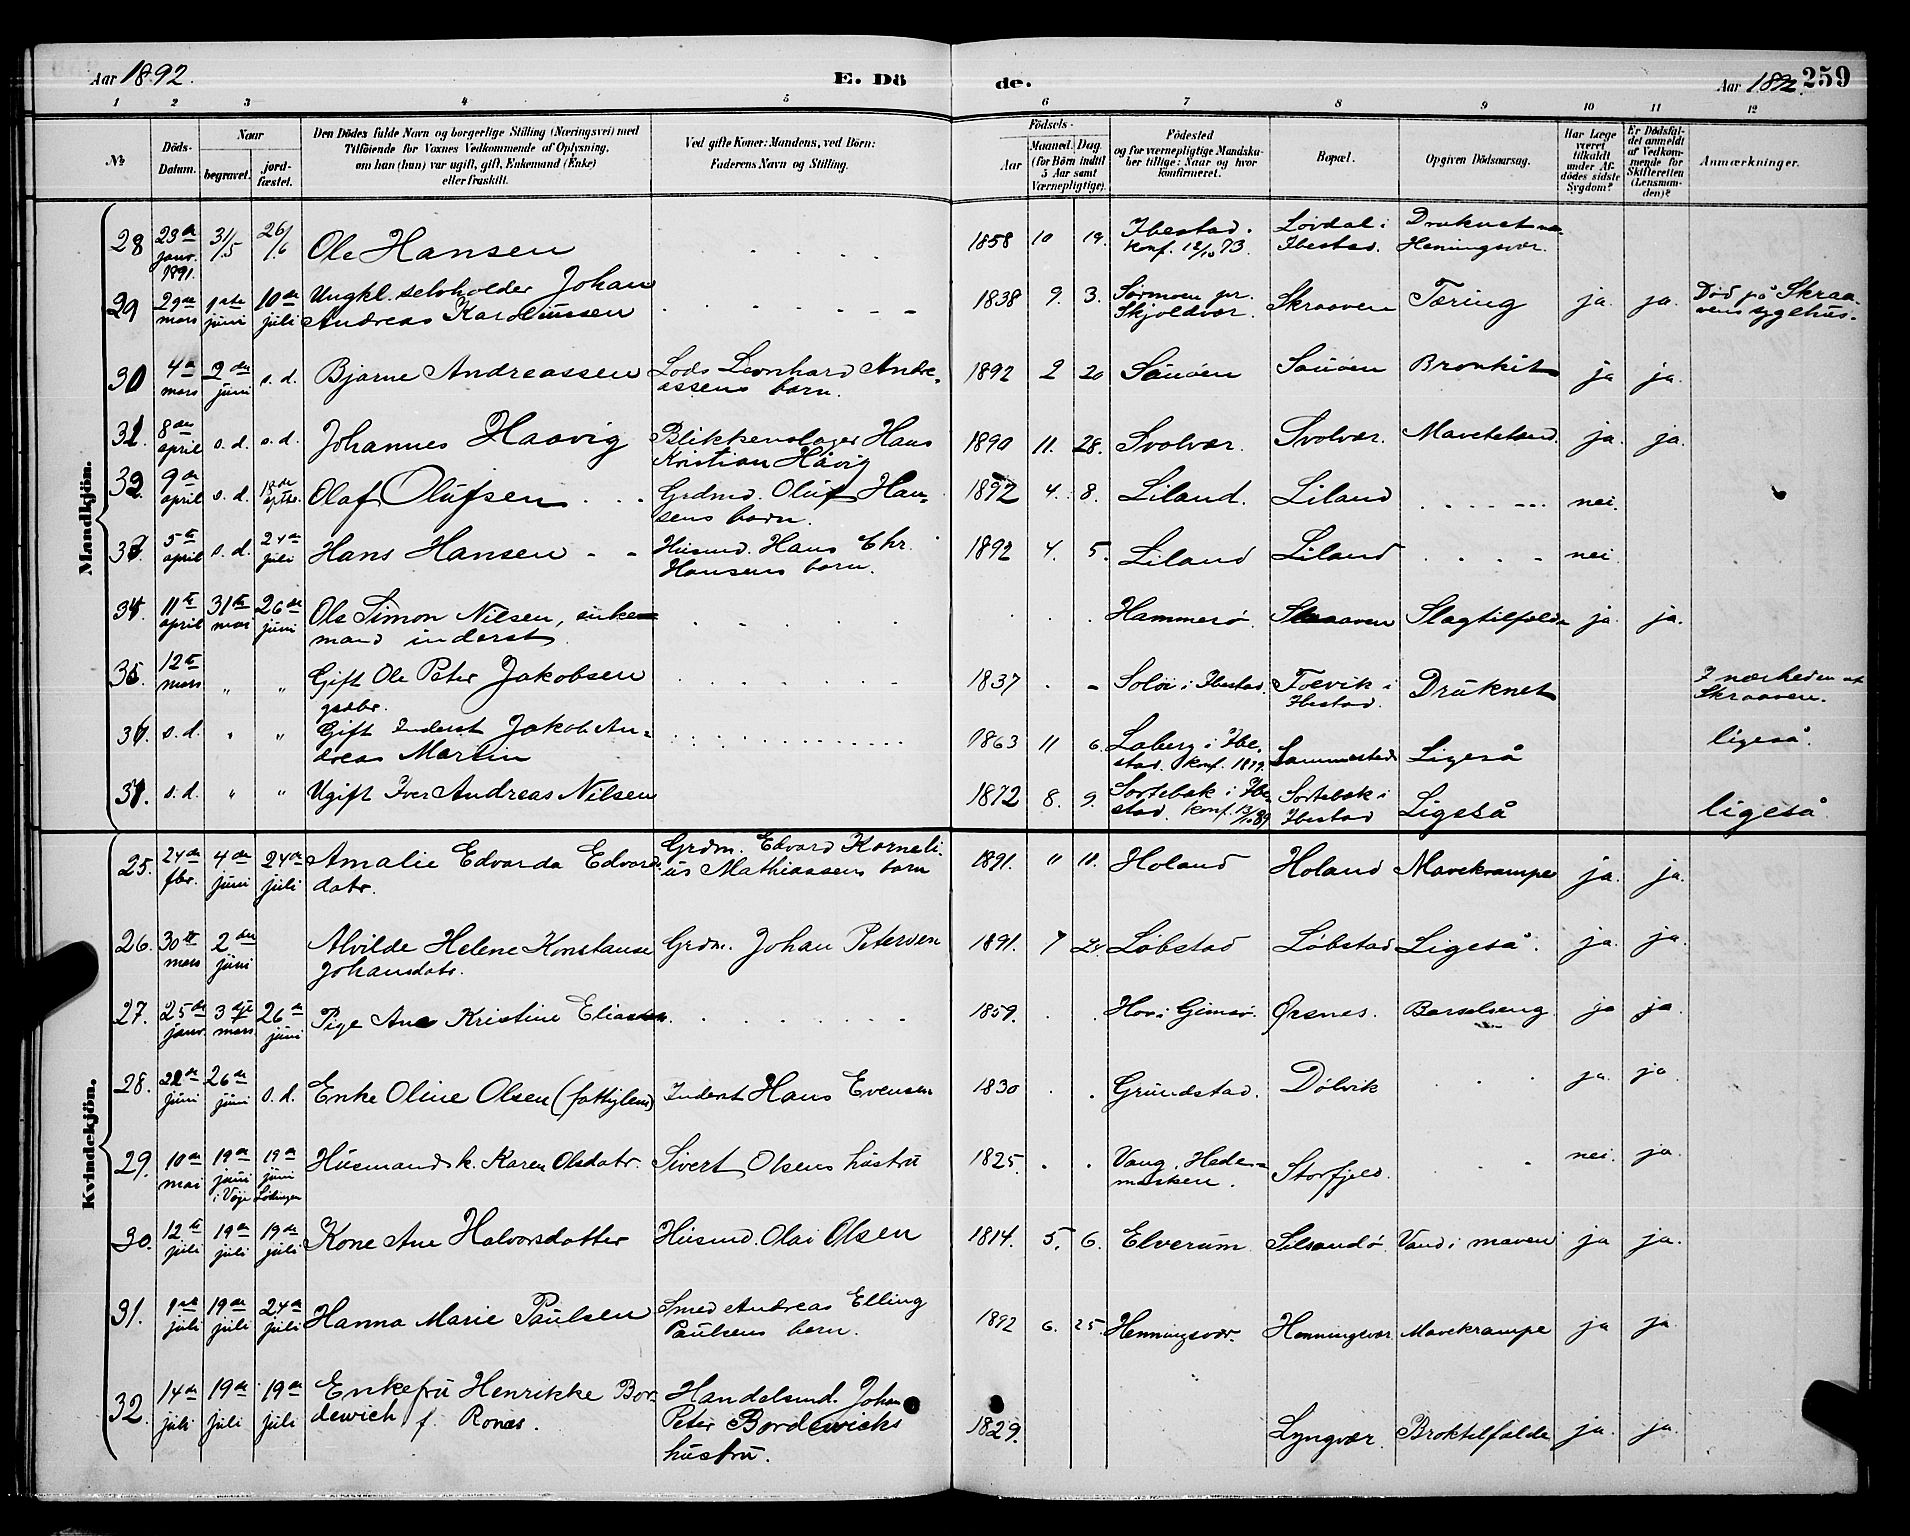 Aar 1892.
E. Dö
de.
Aar 1892. 259
1 2 3 4 5 6 7 8 9 10 11 12
No
Döds-Datum.
Naar
begravet.
jord-fæstet.
Den Dödes fulde Navn og borgerlige Stilling (Næringsvei) med
Tilföiende for Voxnes Vedkommende af Oplysning,
om han (hun) var ugift, gift, Enkemand (Enke)
eller fraskilt.
Ved gifte Koner: Mandens, ved Börn:
Faderens Navn og Stilling.
Födsels-
Aar
Maaned. Dag.
(for Börn indtil
5 Aar samt
Værnepligtige).
Födested
og for værnepligtige Mandska-
ber tillige: Naar og hvor
konfirmeret.
Bopæl.
Opgiven Dödsaarsag.
Har Læge
været
tilkaldt
under Af-
dödes sidste
Sygdom?
Er Dödsfal-
det anmeldt
af Vedkom-
mende for
Skifteretten
(Lensman-
den)?
Anmærkninger.
Mandkjön.
28 23de janr. 1891. 31/5 26/6 Ole Hansen 1858 10 19. Ibestad. konf. 12/10 73. Lövdal i Ibestad. Druknet Heningsvær.
29 29de mars 1ste juni 10de juli Ungkl. selvholder Johan Andreas Karoliussen 1838 9. 3. Sörmoen pr. Skjoldvær. Skraaven Tæring ja. ja. Död på Skraavens sygehus.
30 4de mars 2den juni s. d. Bjarne Andreassen Lods Leonhard Andreassens barn. 1892 2 20 Sauöen Sauöen Bronkit ja ja.
31. 8de april s. d. s. d. Johannes Haavig Blikkenslager Hans Kristian Håvig 1890 11. 28. Svolvær. Svolvær. ja. ja.
32 9de april s. d. 18de septbr. Olaf Olufsen Grdmd. Oluf Hansens barn. 1892 4. 8. Liland. Liland nei.
33 5te april s. d. 24de juli Hans Hansen Husmd. Hans Chr. Hansens barn. 1892 4. 5. Liland Liland nei
34 11te april 31te mai 26de juni Ole Simon Nilsen, enkemand inderst Hammerö. Skraaven Slagtilfælde ja. ja.
35 12te mars „ „ Gift Ole Peter Jakobsen gaabr. 1837 Solöi i Ibestad. Toevik i Ibestad. Druknet I nærheden af Skraaven.
36. s. d. „ „ Gift Inderst Jakob Andreas Martin 1863 11 6. Laberg i Ibestad. konf. 1879 Ligeså ligeså.
37. s. d. „ „ Ugift Iver Andreas Nilsen 1872 8. 9. Sortebak i Ibestad. konf. 13/10 89 Sortebak i Ibestad Ligeså ligeså
Kvindekjön.
25. 24de fbr. 4de juni 24de juli Amalie Edvarda Edvardsdatr. Grdm. Edvard Kornelius Mathiassens barn 1891. „ 11. Holand Holand Mavekrampe ja. ja.
26. 30te mars 2den juni Alvilde Helene Konstanse Johansdatr. Grdm. Johan Petersen 1891. 7 Löbstad Löbstad Ligeså. ja. ja.
27. 25de janr. 3dje mars 26de juni Pige Ane Kristine Eliasdatr. 1859. Hov i Gimsö. Ørsnes. Barselseng. ja ja.
28. 22de juni 26de juni s. d. Enke Oline Olsen (fattiglem) Inderst Hans Evensen 1830 Grundstad. Dölvik ja. ja.
29. 10de mai 19de juni i Vaje 19de juni Lödingen Husmandsk. Karen Olsdatr. Sivert Olsens hustru 1825. Vang, Hedemarken. Storfjeld. nei. ja.
30. 12te juli 19de juli 19de juli Kone Ane Halvorsdatter Husmd. Olai Olsen 1814. 5. 6. Elverum Silsandö Vand i maven ja ja.
31. 1ste juli 19de juli 24de juli Hanna Marie Paulsen Smed Andreas Elling Paulsens barn. 1892 6. 25. Henningsvær. Henningsvær Mavekrampe ja ja.
32. 14de juli 19de juli 19de juli Enkefru Henrikke Bordewich f. Rönes. Handelsmd. Johan Peter Bordewicks hustru. 1829. Lyngvær. Broktilfælde ja. ja.